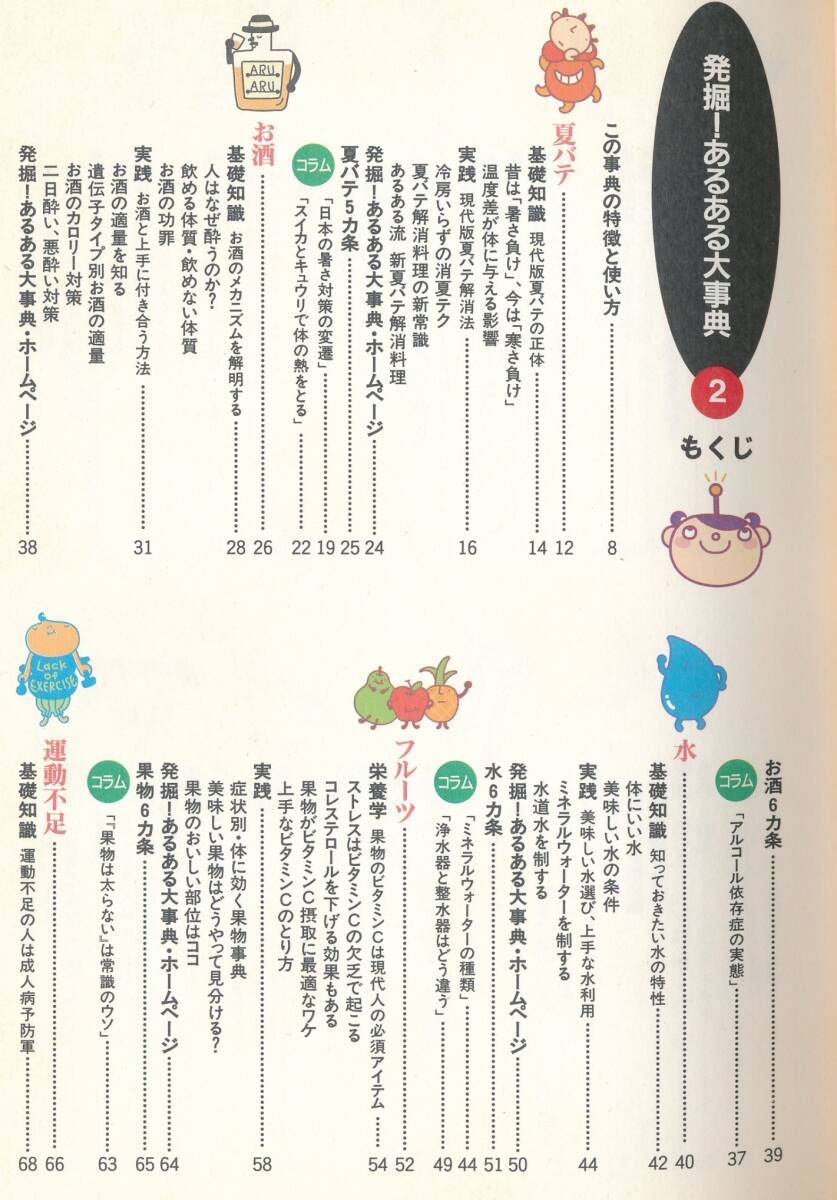 発掘！あるある大事典
2
もくじ
この事典の特徴と使い方 8
夏バテ 12
基礎知識 現代版夏バテの正体 14
昔は「暑さ負け」、今は「寒さ負け」
温度差が体に与える影響
実践 現代版夏バテ解消法 16
冷房いらずの消夏テク
夏バテ解消料理の新常識
あるある流 新夏バテ解消料理
発掘！あるある大事典・ホームページ 24
夏バテ5カ条 25
コラム
「日本の暑さ対策の変遷」 19
「スイカとキュウリで体の熱をとる」 22
ARU
ARU
お酒 26
基礎知識 お酒のメカニズムを解明する 28
人はなぜ酔うのか？
飲める体質・飲めない体質
お酒の功罪
実践 お酒と上手に付き合う方法 31
お酒の適量を知る
遺伝子タイプ別お酒の適量
お酒のカロリー対策
二日酔い、悪酔い対策
発掘！あるある大事典・ホームページ 38
お酒6カ条 39
コラム
「アルコール依存症の実態」 37
水 40
基礎知識 知っておきたい水の特性 42
体にいい水
美味しい水の条件
実践 美味しい水選び、上手な水利用 44
ミネラルウォーターを制する
水道水を制する
発掘！あるある大事典・ホームページ 50
水6カ条 51
コラム
「ミネラルウォーターの種類」 44
「浄水器と整水器はどう違う」 49
フルーツ 52
栄養学 果物のビタミンCは現代人の必須アイテム 54
ストレスはビタミンCの欠乏で起こる
コレステロールを下げる効果もある
果物がビタミンC摂取に最適なワケ
上手なビタミンCのとり方
実践 58
症状別・体に効く果物事典
美味しい果物はどうやって見分ける？
果物のおいしい部位はココ
発掘！あるある大事典・ホームページ 64
果物6カ条 65
コラム
「『果物は太らない』は常識のウソ」 63
Lack
of
EXERCISE
運動不足 66
基礎知識 運動不足の人は成人病予防軍 68